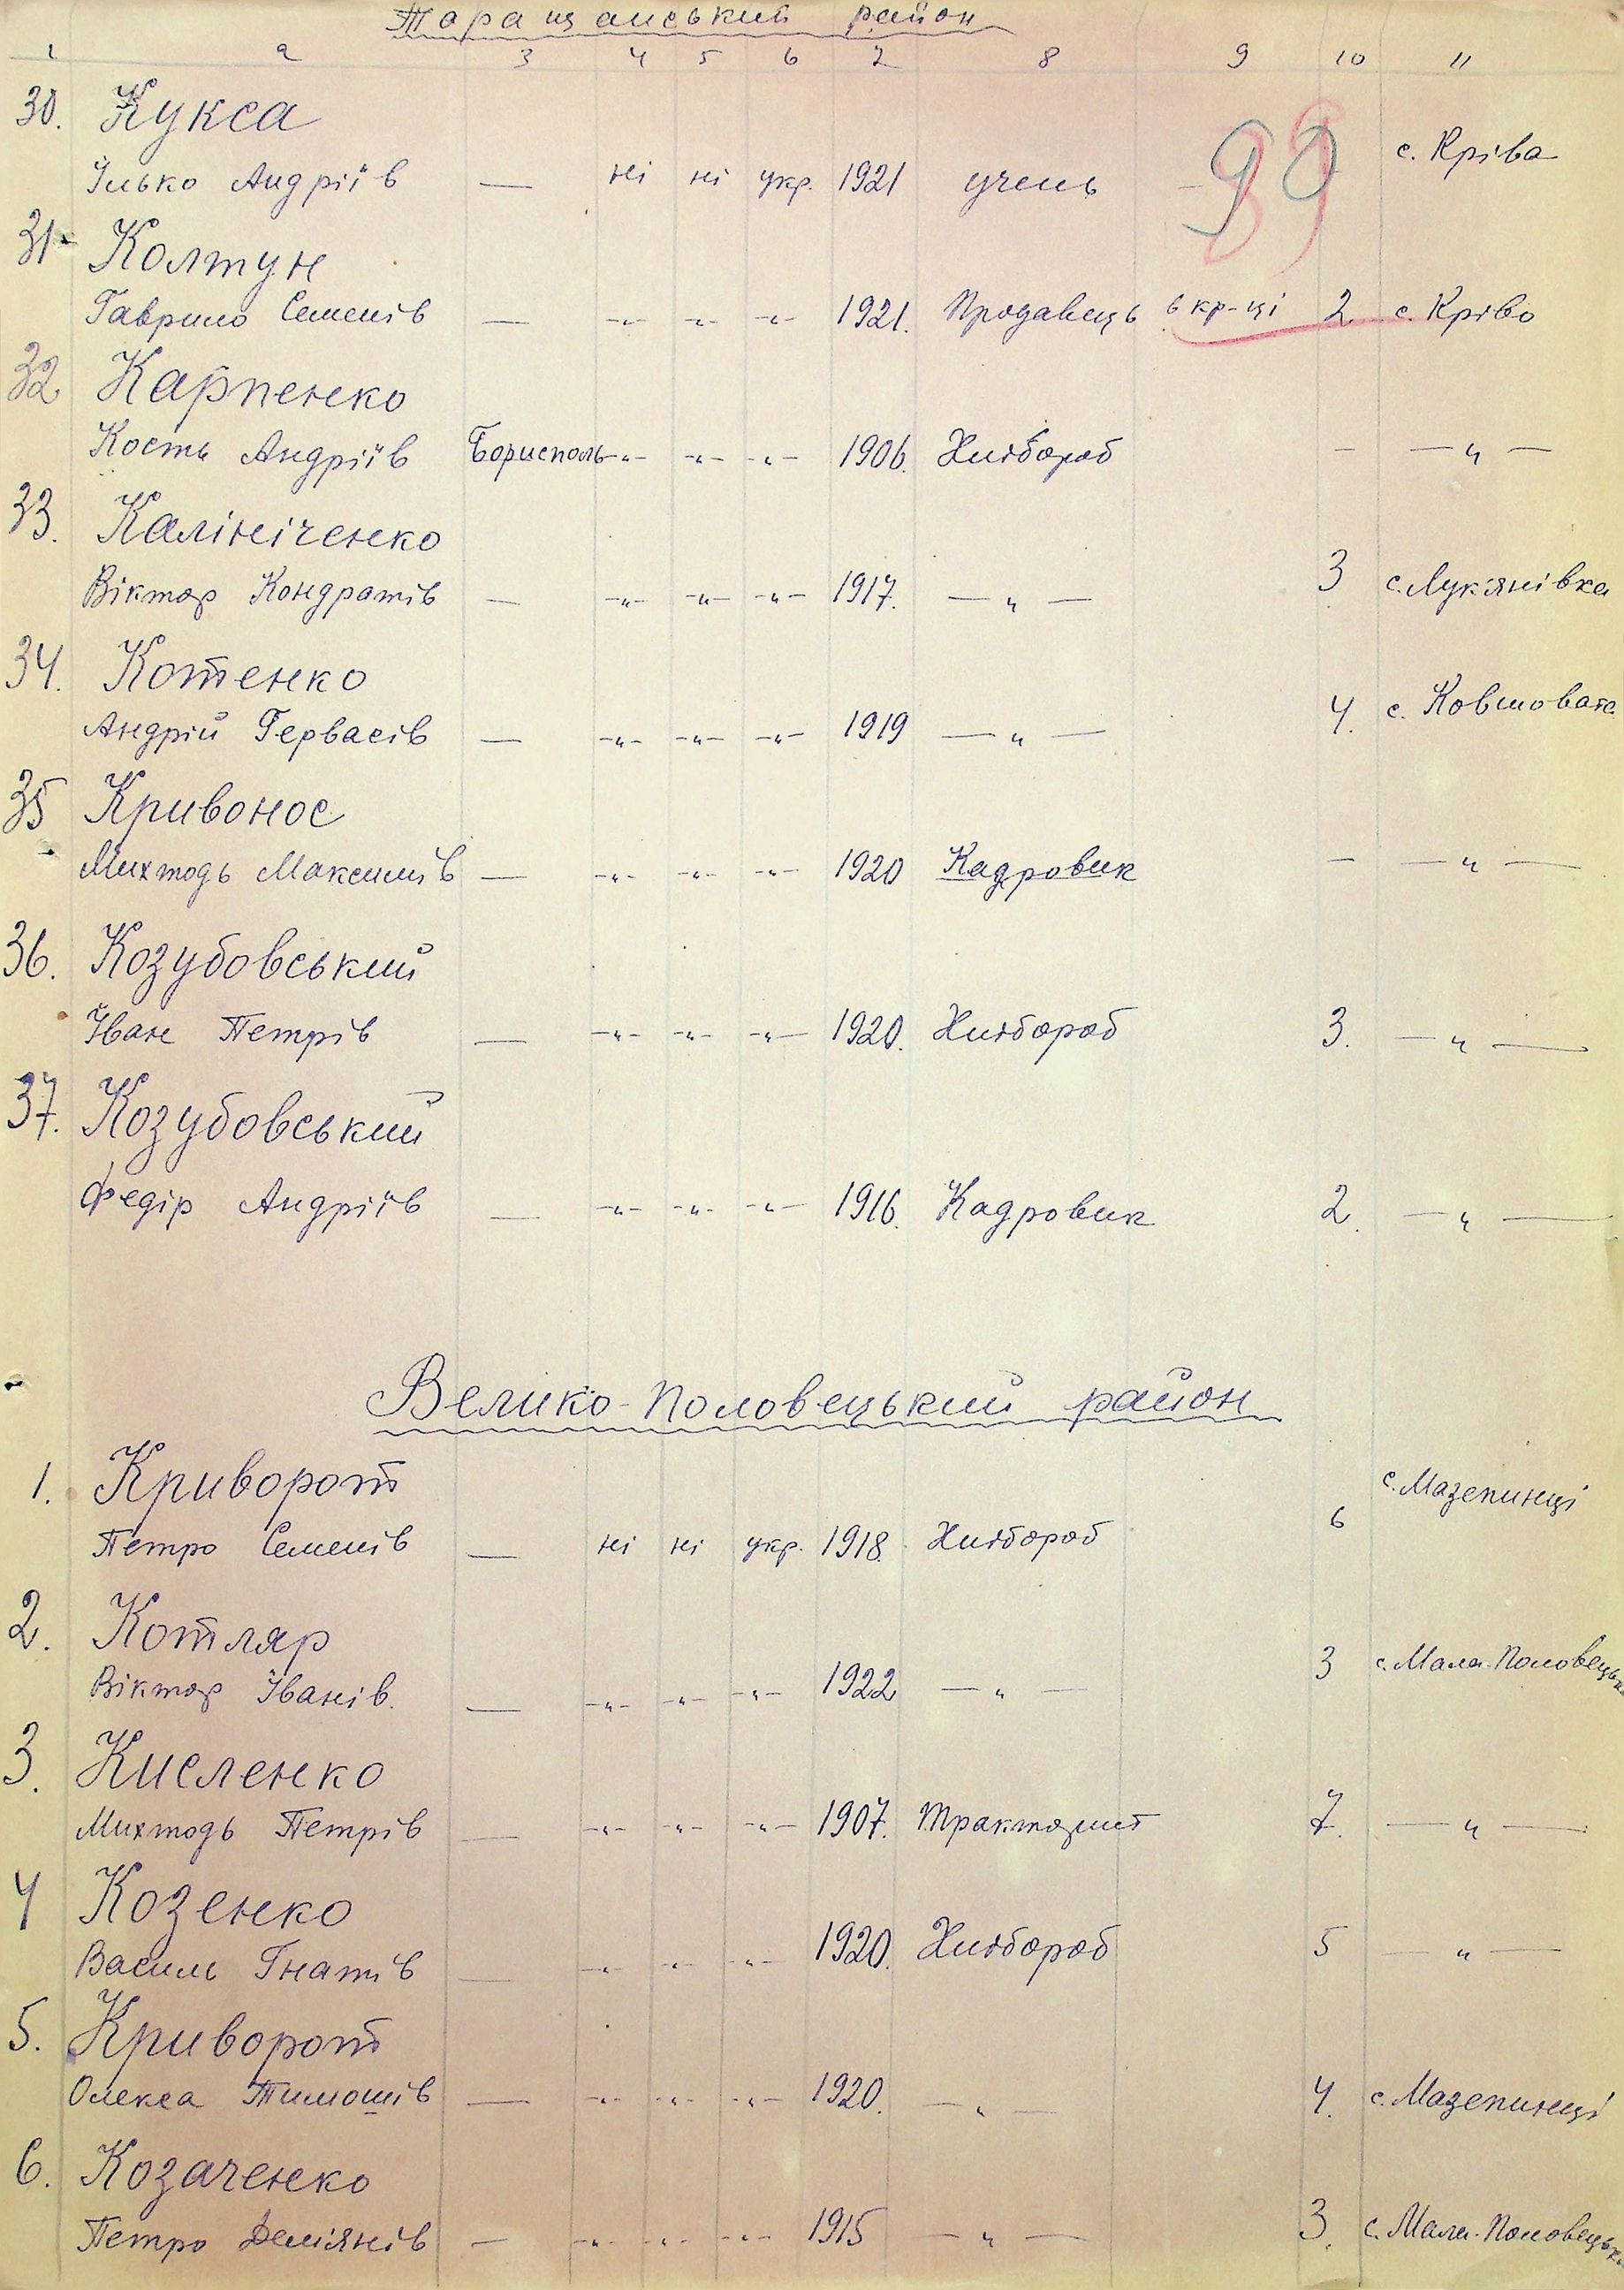 Таращанський район
1 2 3 4 5 6 7 8 9 10 11
30. Кукса с. Кріва
Ілько Андріїв — ні ні укр. 1921 учень –
31. Колтун
Гаврило Семенів — -„- -„- -„- 1921. Продавець в кр-ці 2 с. Кріва
32 Карпенко
Кость Андріїв Бориспіль -„- -„- -„- 1906. Хлібороб – —„—
33. Калініченко
Віктор Кондратів — -„- -„- -„- 1917. —„— 3 с. Лукянівка
34. Котенко
Андрій Гервасів — -„- -„- -„- 1919 —„— 4. с. Ковшовата
35 Кривонос
Михтодь Максимів — -„- -„- -„- 1920 Кадровик – —„—
36. Козубовський
Іван Петрів — -„- -„- -„- 1920. Хлібороб 3. —„—
37. Козубовський
Федір Андріїв — -„- -„- -„- 1916. Кадровик 2. —„—
Велико-Половецький район
1. Криворот с. Мазепинці
Петро Семенів — ні ні укр. 1918. Хлібороб 6
2. Котляр
Віктор Іванів. — -„- -„- -„- 1922 —„— 3 с. Мала-Половецьк
3. Кисленко
Михтодь Петрів — -„- -„- -„- 1907. Тракторист 7. —„—
4 Козенко
Василь Гнатів — -„- -„- -„- 1920. Хлібороб 5 —„—
5. Криворот
Олекса Тимошів — -„- -„- -„- 1920. —„— 4. с. Мазепинці
6. Козаченко
Петро Демянів — -„- -„- -„- 1915 —„— 3. с. Мала-Половецьк